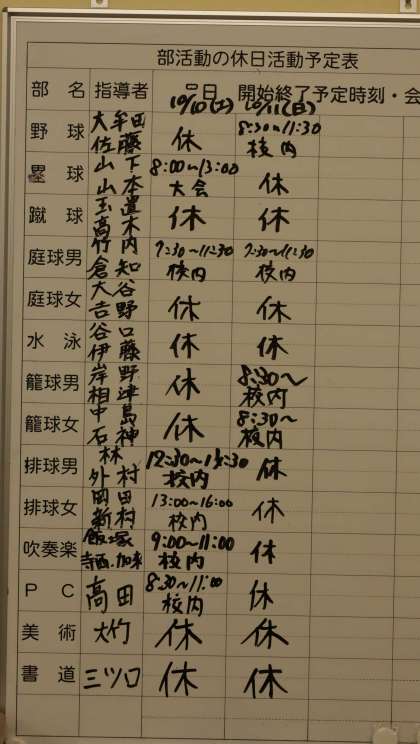 部活動の休日活動予定表
部名 指導者 月日 開始終了予定時刻・会
10/10(土) 10/11(日)
野球 大牟田 佐藤 休 8:30~11:30 校内
塁球 山下 山本 8:00~13:00 大会 休
蹴球 玉置 高木 休 休
庭球男 竹内 倉知 9:30~11:30 校内 9:30~11:30 校内
庭球女 大谷 吉野 休 休
水泳 谷口 伊藤 休 休
籠球男 岸野 相津 休 8:30~ 校内
籠球女 中島 石神 休 8:30~ 校内
排球男 林 外村 12:30~ 校内 休
排球女 岡田 新村 13:00~16:00 校内 休
吹奏楽 飯塚 寺西.加来 9:00~11:00 校内 休
PC 高田 8:30~11:00 校内 休
美術 大竹 休 休
書道 三ツ口 休 休